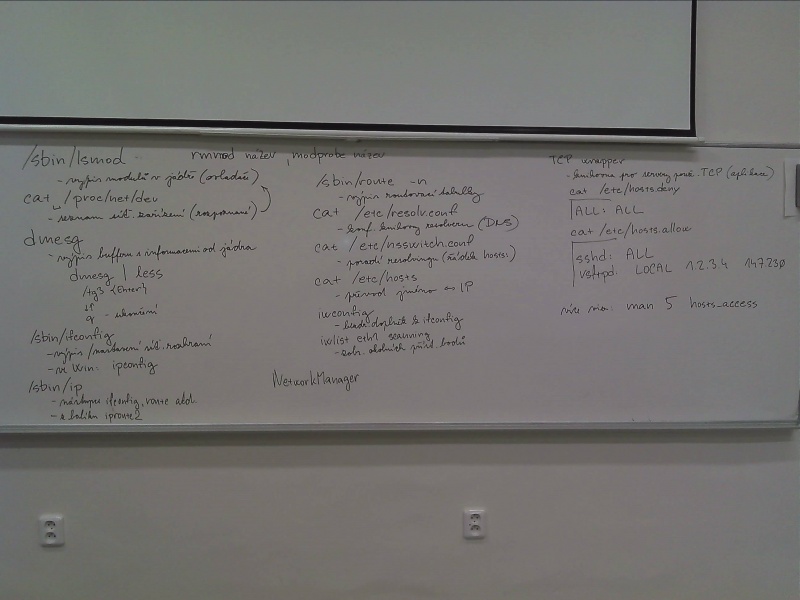 /sbin/lsmod rmmod název, modprobe název
- výpis modulů v jádře (ovladače)
cat /proc/net/dev
- seznam síť. zařízení (rozpoznaní)
dmesg
- výpis bufferu s informacemi od jádra
dmesg | less
/tg3 <Enter>
↓↑
q - ukončení
/sbin/ifconfig
- výpis/nastavení síť. rozhraní
- ve Win: ipconfig
/sbin/ip
- nástupce ifconfig, route atd.
- z balíku iproute2
/sbin/route -n
- výpis routovací tabulky
cat /etc/resolv.conf
- konf. knihovny resolveru (DNS)
cat /etc/nsswitch.conf
- pořadí resolvingu (řádek hosts:)
cat /etc/hosts
- převod jméno ↔ IP
iwconfig
- bezdr. doplněk k ifconfig
iwlist eth1 scanning
- zobr. okolních příst. bodů
NetworkManager
TCP wrapper
- knihovna pro servery použ. TCP (aplikace)
cat /etc/hosts.deny
ALL: ALL
cat /etc/hosts.allow
sshd: ALL
vsftpd: LOCAL 1.2.3.4 147.230
více viz: man 5 hosts_access